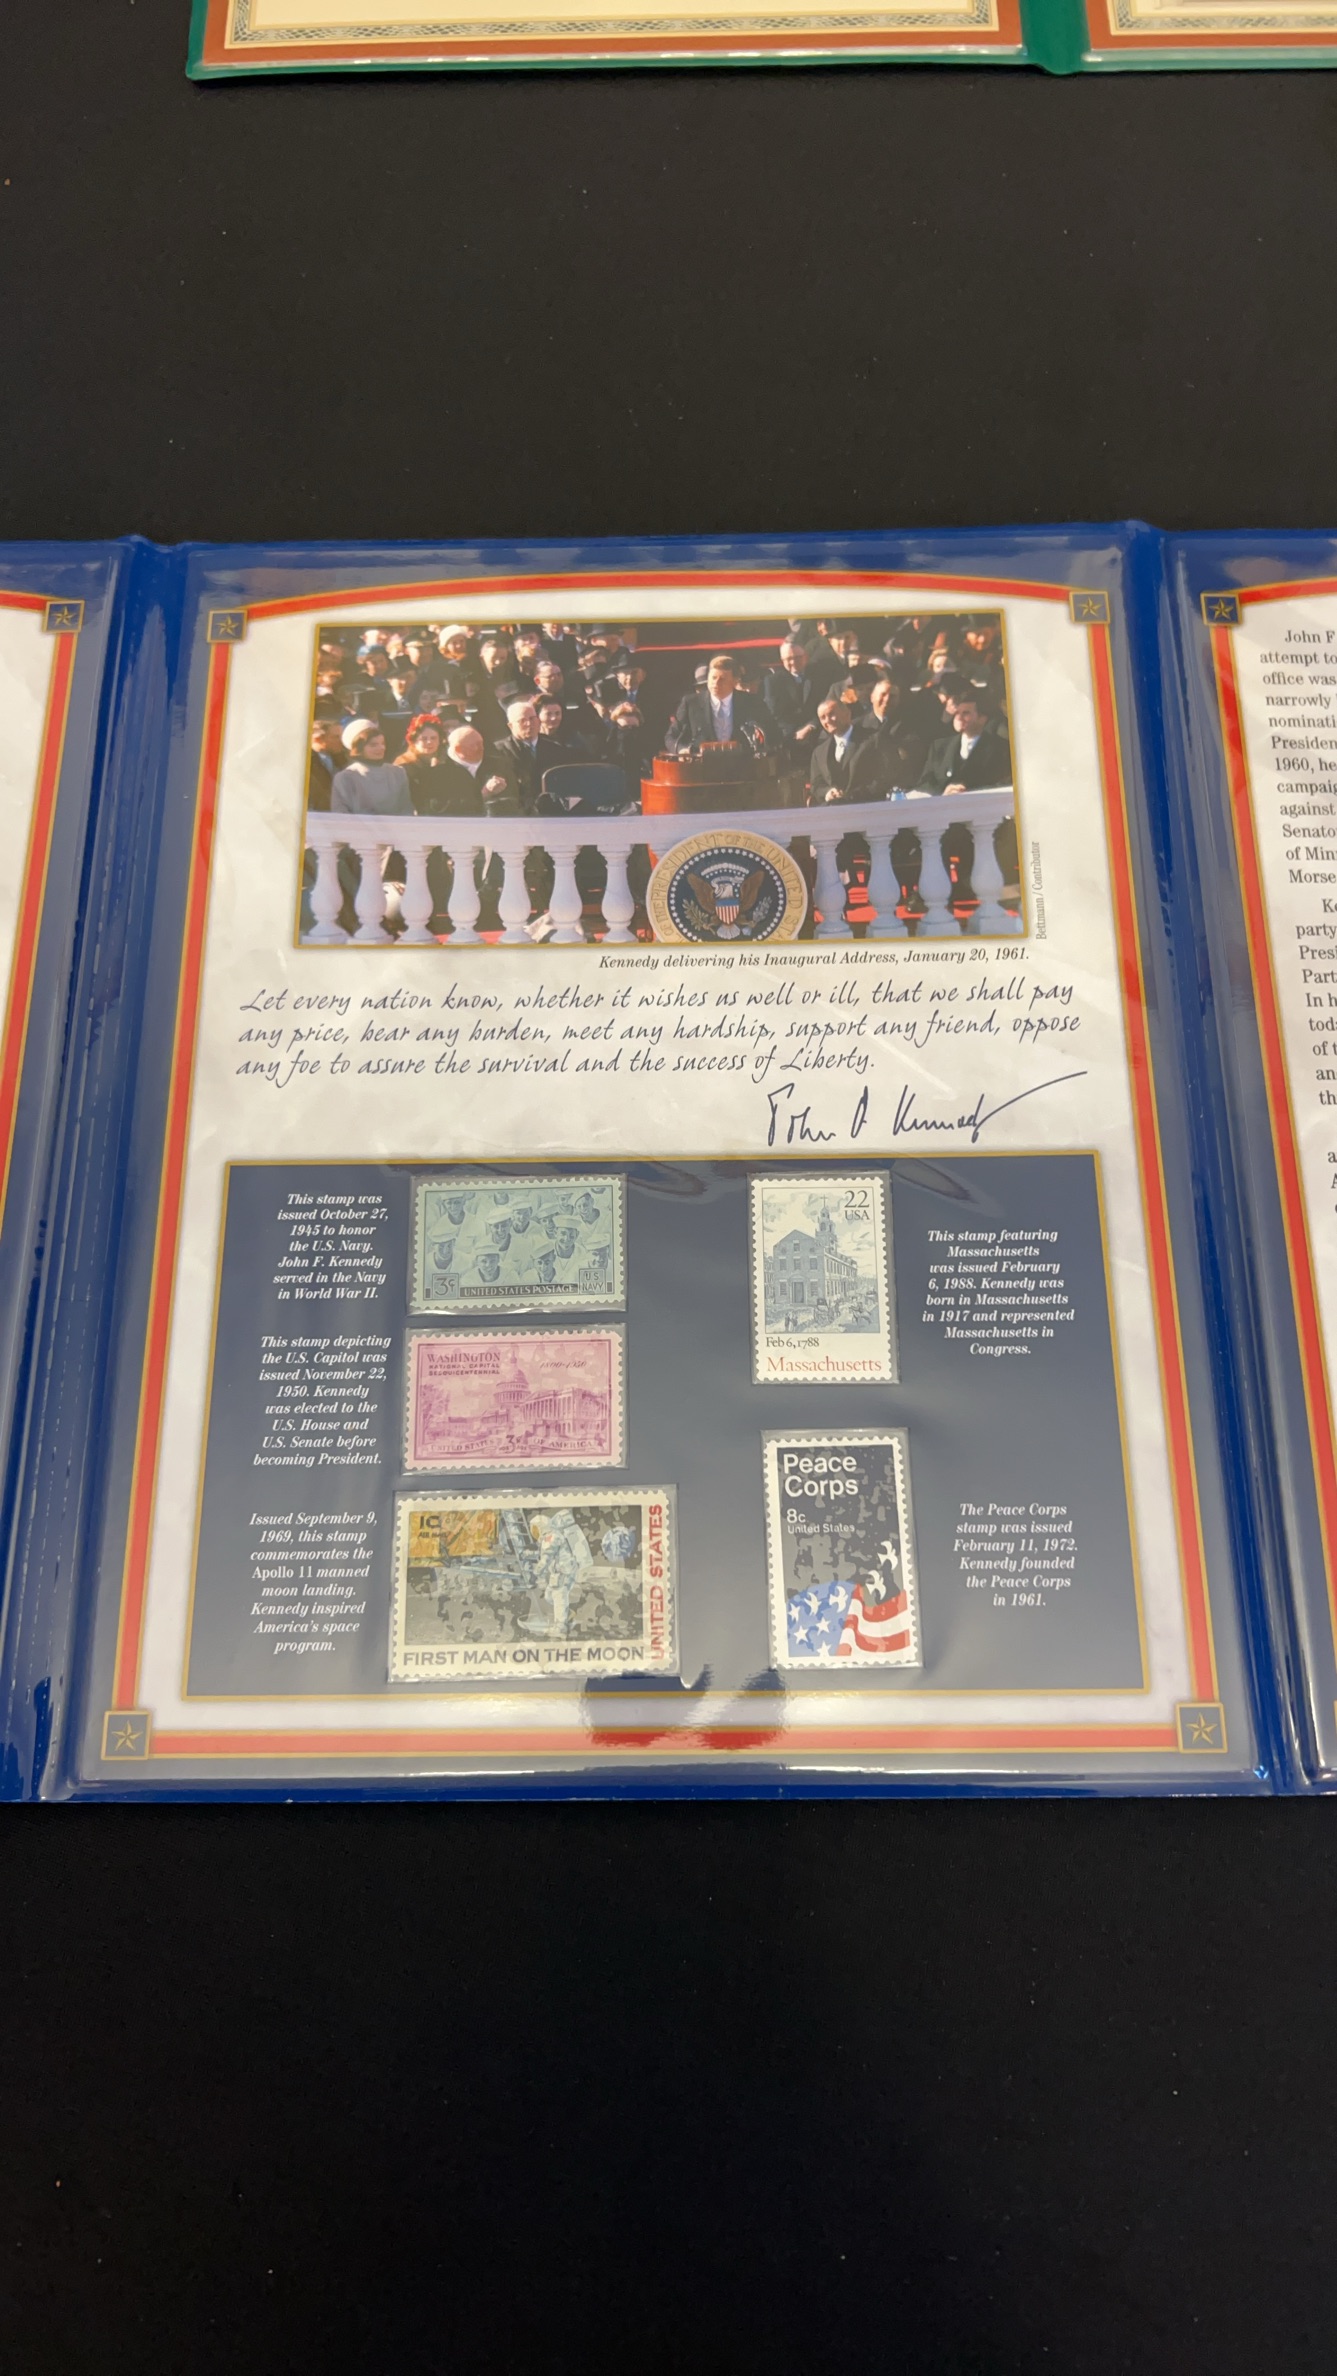 THE PRESIDENT OF THE UNITED STATES
Bettmann / Contributor
Kennedy delivering his Inaugural Address, January 20, 1961.
Let every nation know, whether it wishes us well or ill, that we shall pay
any price, bear any burden, meet any hardship, support any friend, oppose
any foe to assure the survival and the success of Liberty.
John F Kennedy
This stamp was
issued October 27,
1945 to honor
the U.S. Navy.
John F. Kennedy
served in the Navy
in World War II.
3¢
UNITED STATES POSTAGE
U.S.
NAVY
This stamp depicting
the U.S. Capitol was
issued November 22,
1950. Kennedy
was elected to the
U.S. House and
U.S. Senate before
becoming President.
WASHINGTON
NATIONAL CAPITAL
SESQUICENTENNIAL
1800-1950
UNITED STATES 3¢ OF AMERICA
Issued September 9,
1969, this stamp
commemorates the
Apollo 11 manned
moon landing.
Kennedy inspired
America's space
program.
10
AIR MAIL
UNITED STATES
FIRST MAN ON THE MOON
22
USA
Feb 6, 1788
Massachusetts
This stamp featuring
Massachusetts
was issued February
6, 1988. Kennedy was
born in Massachusetts
in 1917 and represented
Massachusetts in
Congress.
Peace
Corps
8c
United States
The Peace Corps
stamp was issued
February 11, 1972.
Kennedy founded
the Peace Corps
in 1961.
John F
attempt to
office was
narrowly
nominati
Presiden
1960, he
campaig
against
Senato
of Min
Morse
K
party
Pres
Part
In h
tod
of t
an
th
a